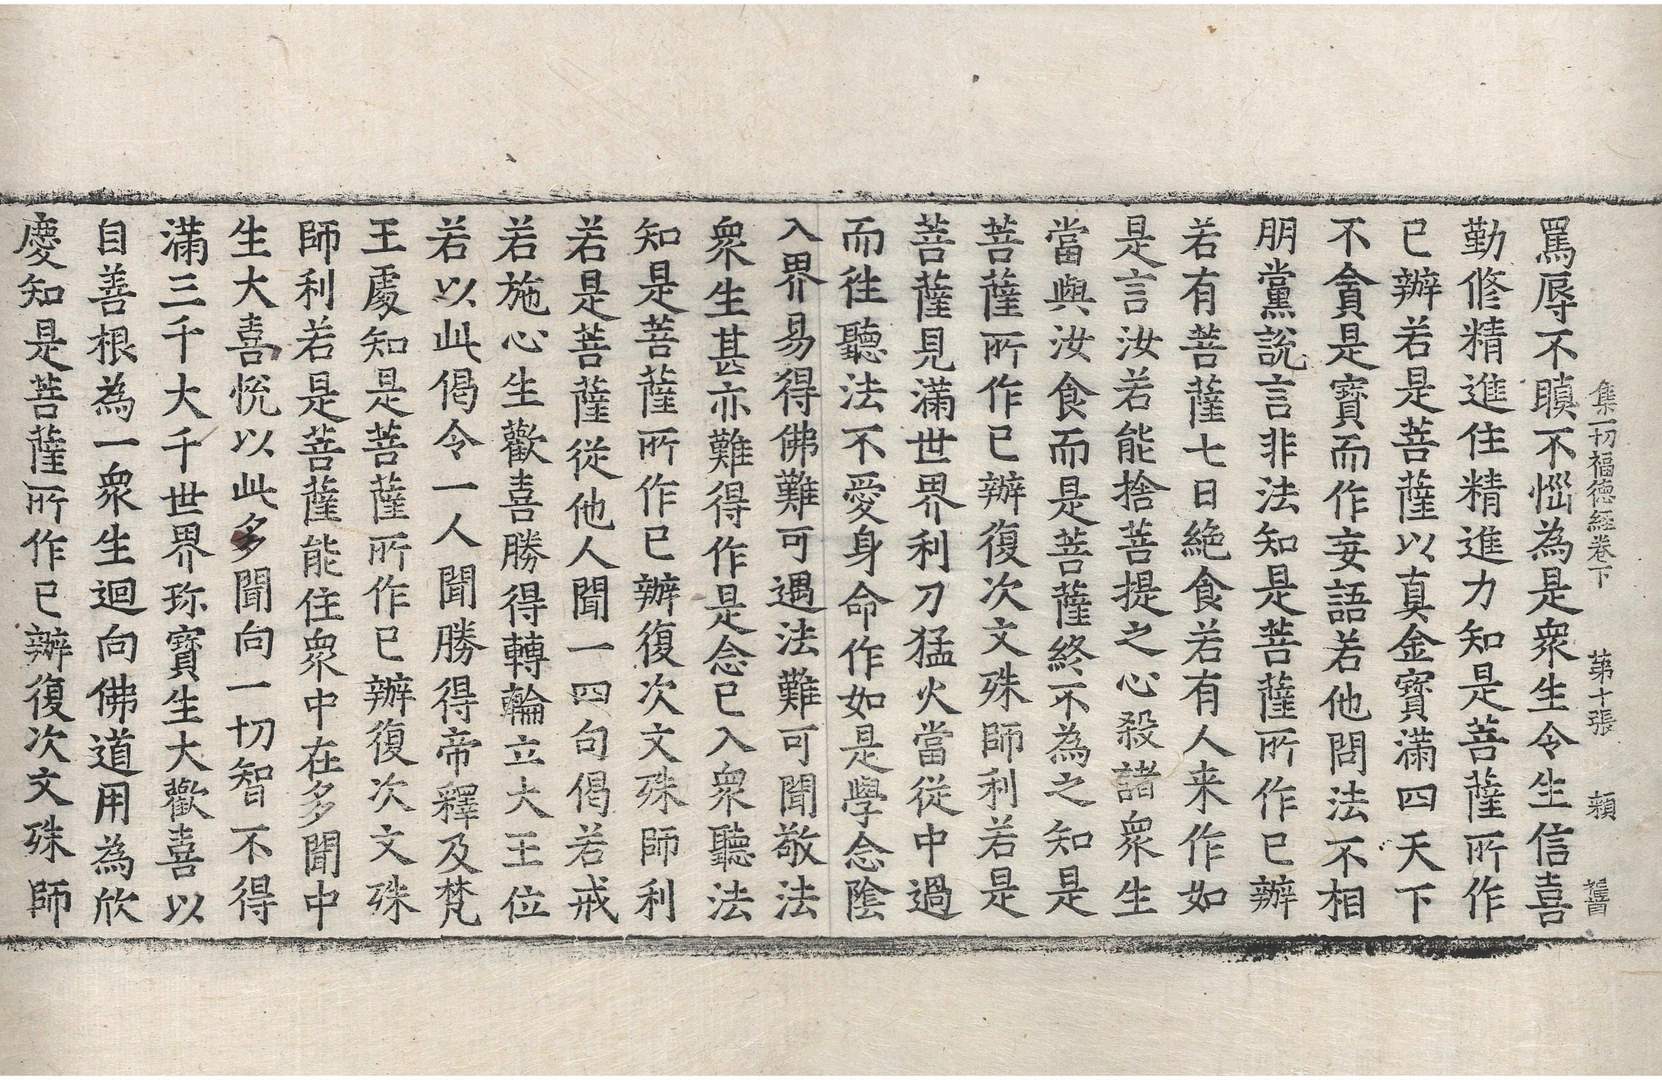 集一切福德經卷下　第十張　頼
罵辱不瞋不惱為是衆生令生信喜
勤修精進住精進力知是菩薩所作
已辦若是菩薩以真金寶滿四天下
不貪是寶而作妄語若他問法不相
朋黨說言非法知是菩薩所作已辦
若有菩薩七日絶食若有人来作如
是言汝若能捨菩提之心殺諸衆生
當與汝食而是菩薩終不為之知是
菩薩所作已辦復次文殊師利若是
菩薩見滿世界利刀猛火當從中過
而往聽法不愛身命作如是學念陰
入界易得佛難可遇法難可聞敬法
衆生甚亦難得作是念已入衆聽法
知是菩薩所作已辦復次文殊師利
若是菩薩從他人聞一四句偈若戒
若施心生歡喜勝得轉輪立大王位
若以此偈令一人聞勝得帝釋及梵
王處知是菩薩所作已辦復次文殊
師利若是菩薩能住衆中在多聞中
生大喜悅以此多聞向一切智不得
滿三千大千世界珎寶生大歡喜以
自善根為一衆生迴向佛道用為欣
慶知是菩薩所作已辦復次文殊師